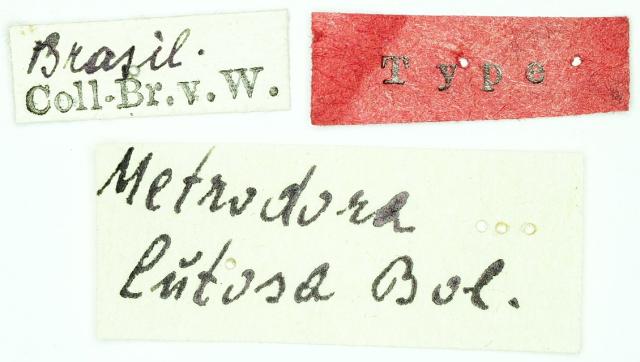 Brasil.
Coll. Br. v. W.
Type
Metrodora
lŭtosa Bol.